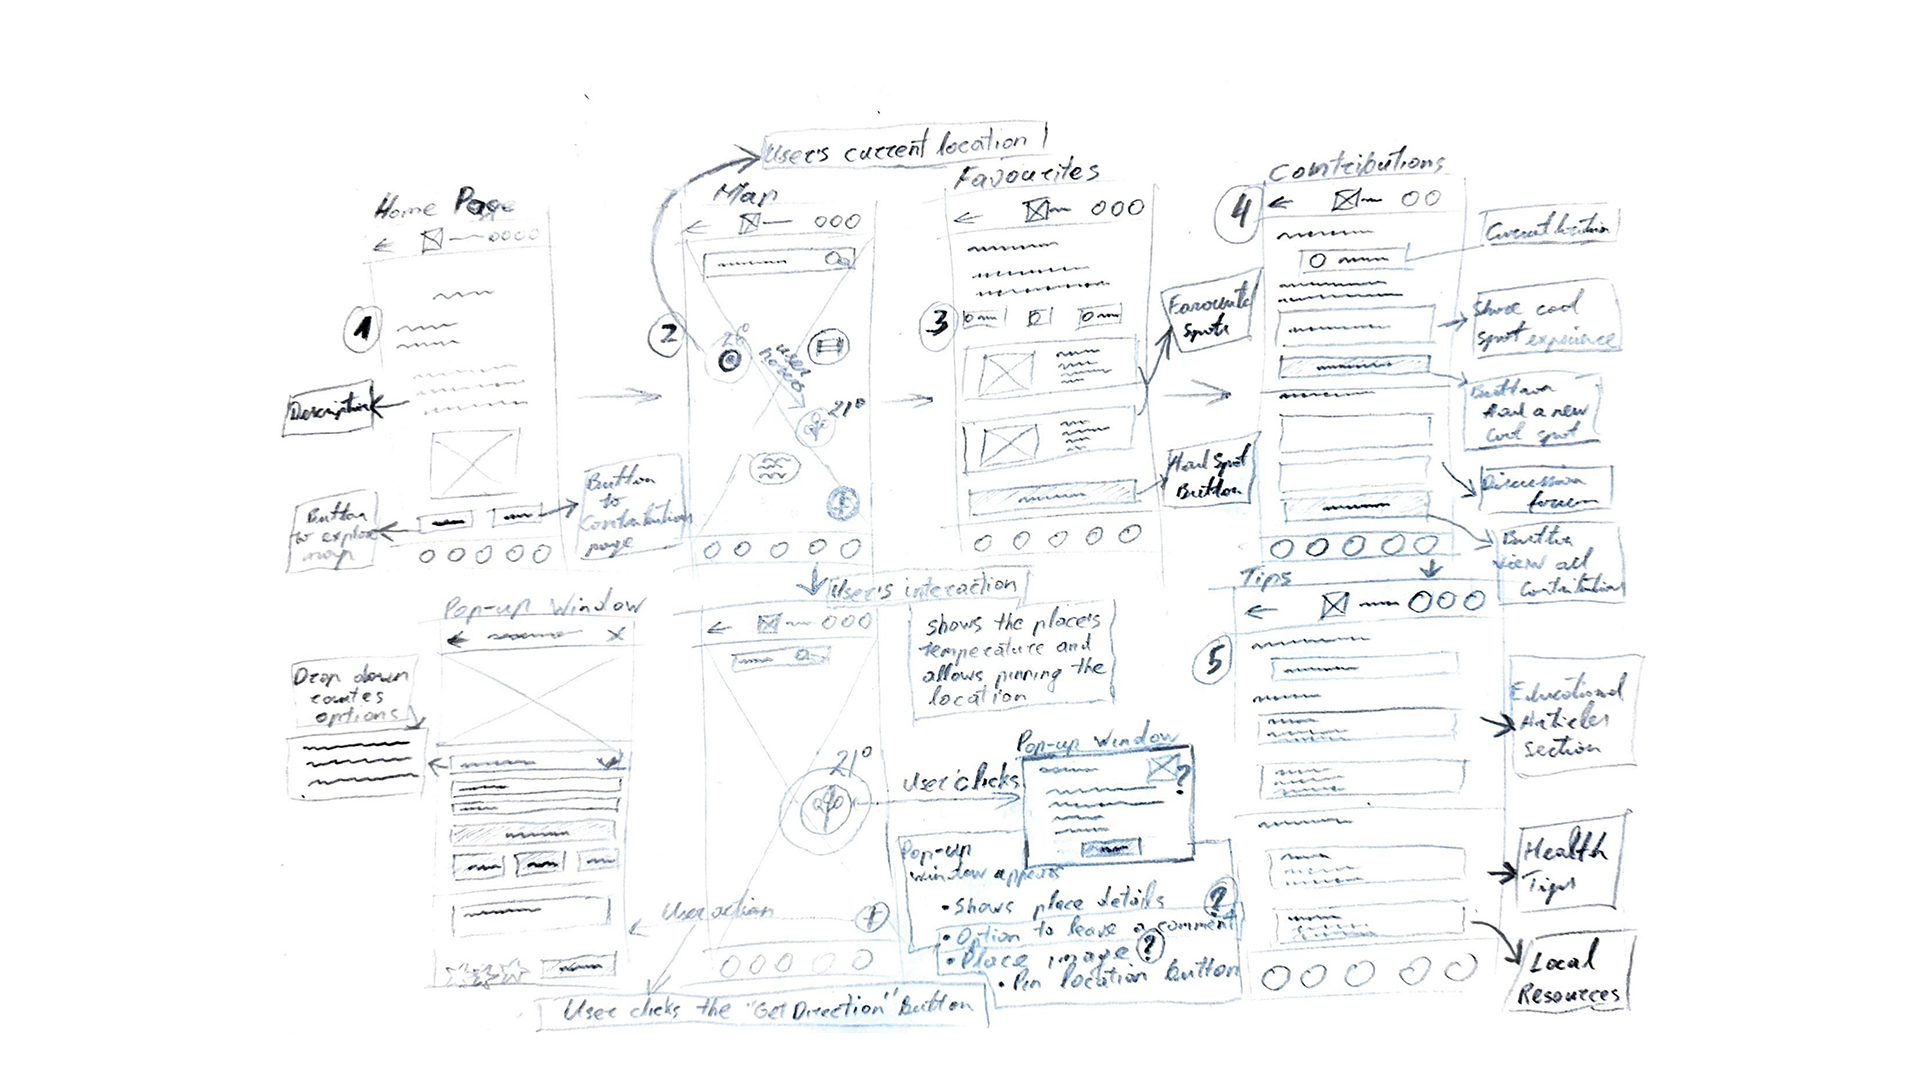 User's current location
Home Page
Map
Favourites
Contributions
4
Current location
1
2
26°
User
moves
21°
3
Favourite
Spots
Share cool
spot experience
Description
Button
Add a new
Cool spot
Button
to explore
map
Button
to
Contributions
page
Add Spot
Button
Discussion
forum
Button
view all
Contributions
User's interaction
shows the place's
temperature and
allows pinning the
location
Pop-up Window
Drop down
routes
options
21°
User clicks
Pop-up Window
?
Pop-up
window appears
• Shows place details ?
• Option to leave a comment
• Place image ?
• Pin location button
User action
User clicks the "Get Direction" Button
Tips
5
Educational
Articles
Section
Health
Tips
Local
Resources